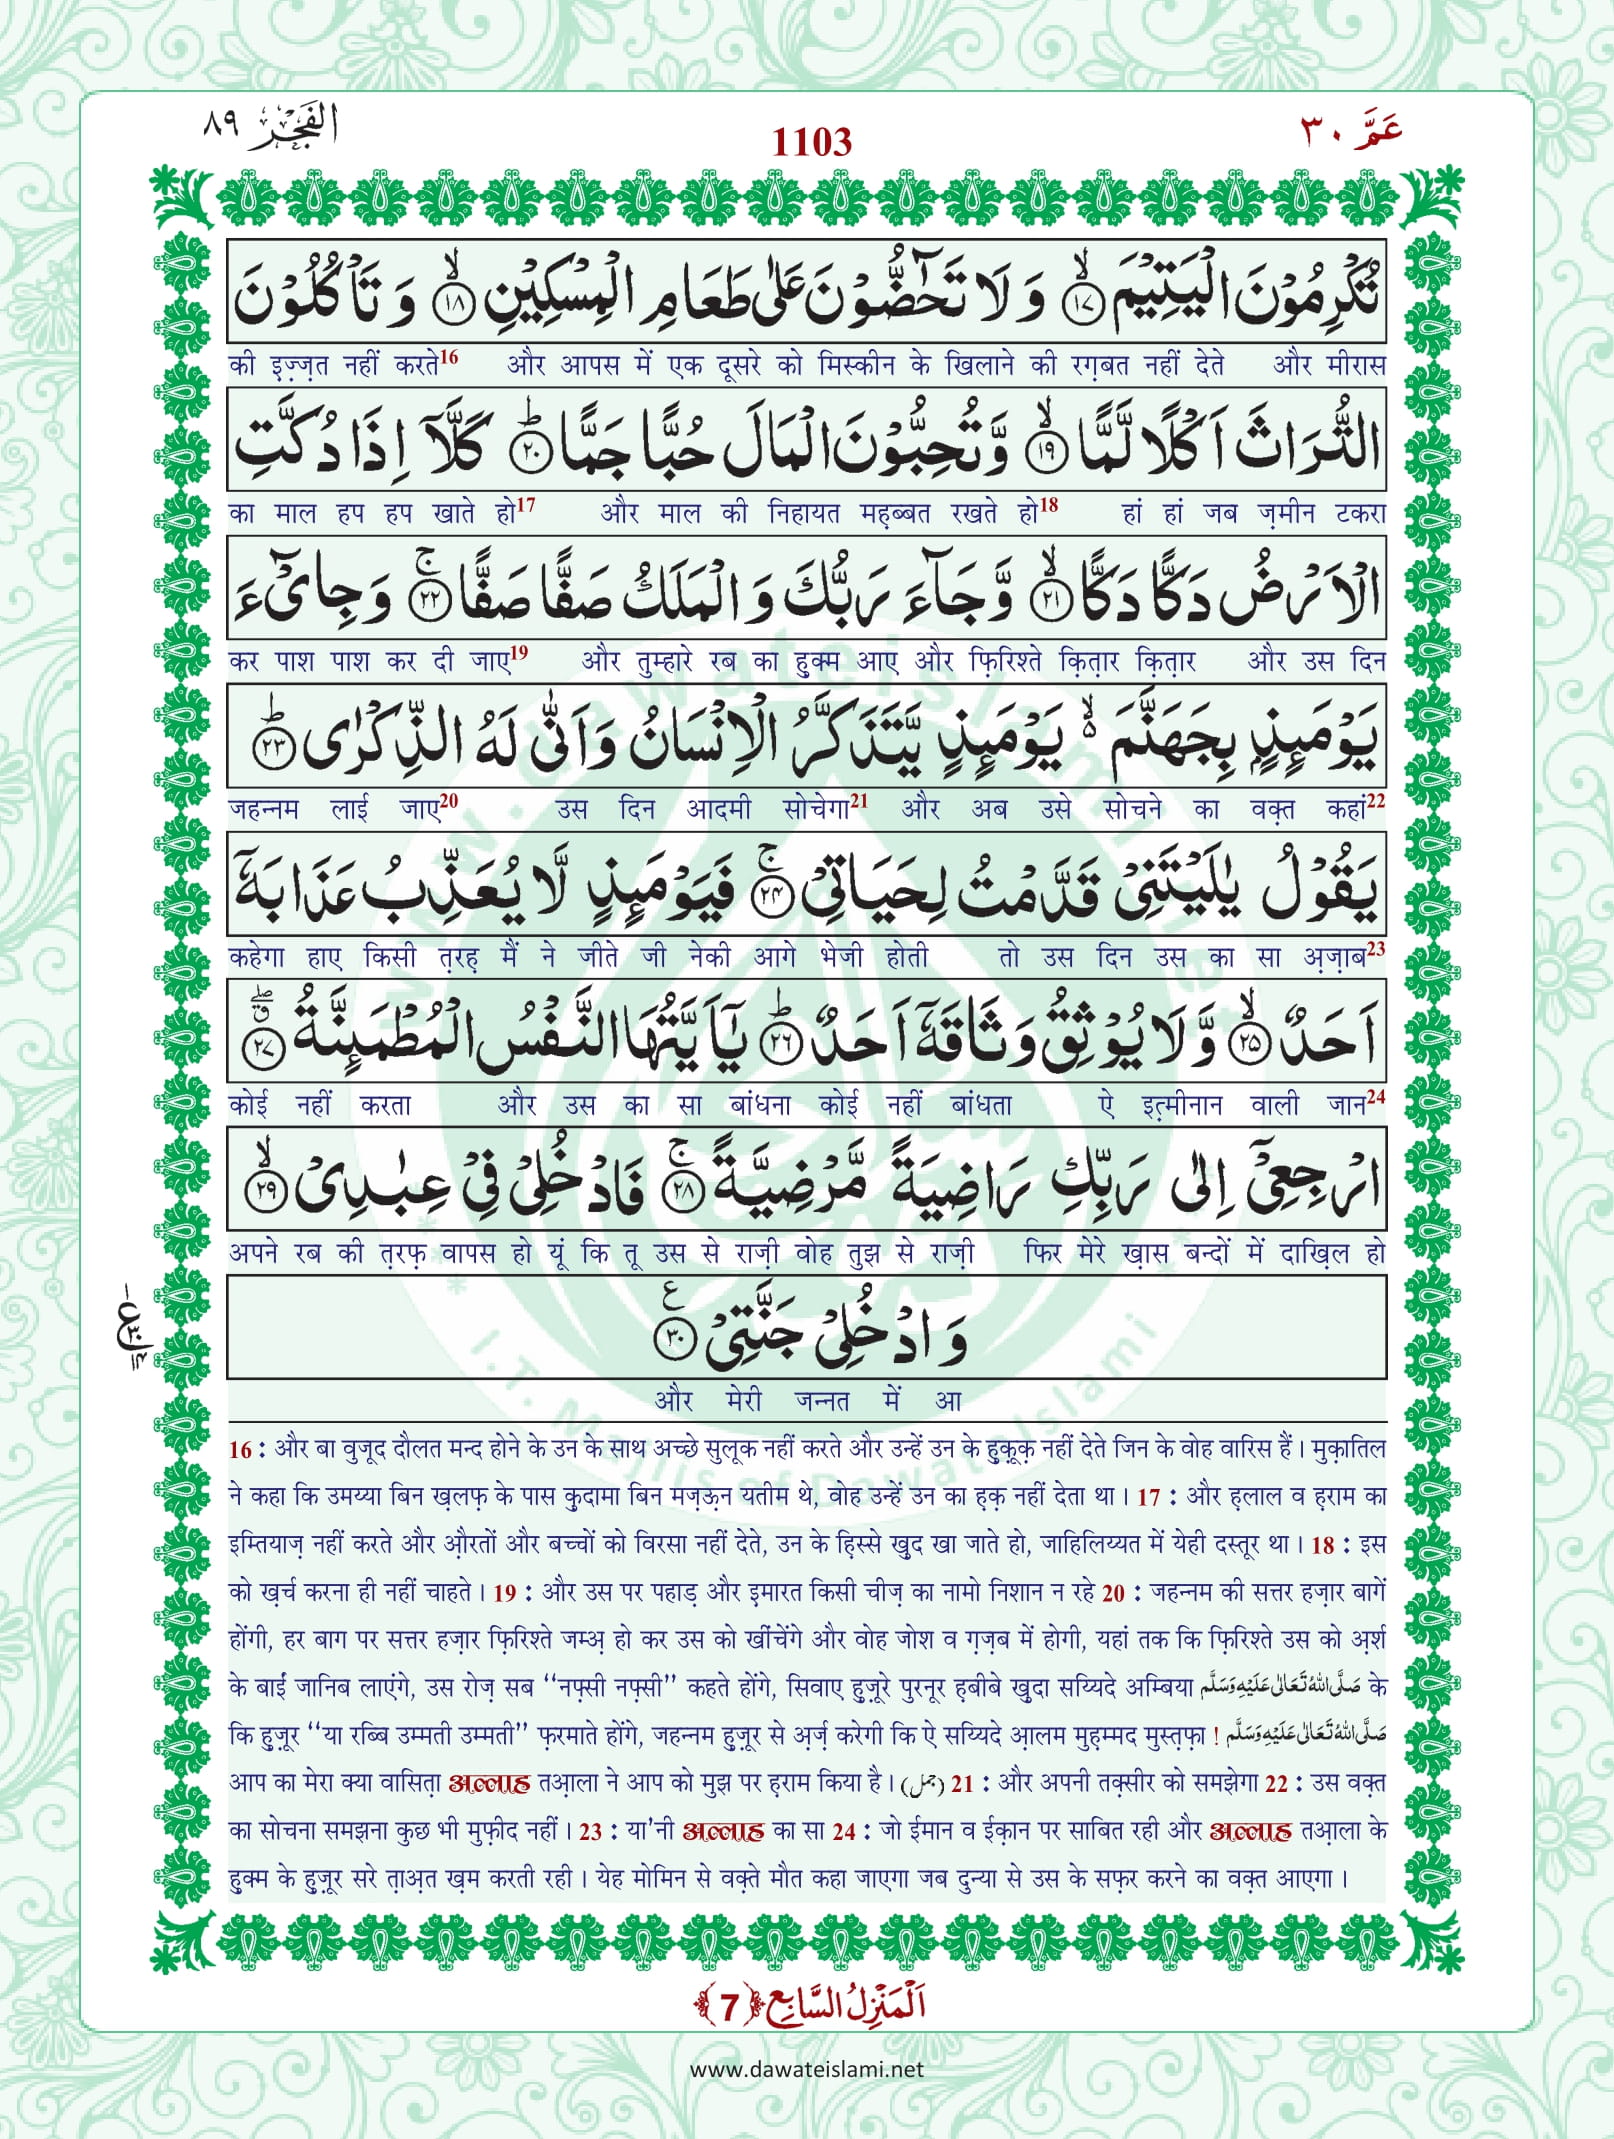 الفجر ٨٩
1103
عَمَّ ٣٠
تُكْرِمُوْنَ الْیَتِیْمَۙ﴿۱۷﴾ وَ لَا تَحٰٓضُّوْنَ عَلٰى طَعَامِ الْمِسْكِیْنِۙ﴿۱۸﴾ وَ تَاْكُلُوْنَ
की इज़्ज़त नहीं करते16 और आपस में एक दूसरे को मिस्कीन के खिलाने की रग़बत नहीं देते और मीरास
التُّرَاثَ اَكْلًا لَّمًّاۙ﴿۱۹﴾ وَّ تُحِبُّوْنَ الْمَالَ حُبًّا جَمًّاؕ﴿۲۰﴾ كَلَّاۤ اِذَا دُكَّتِ
का माल हप हप खाते हो17 और माल की निहायत मह़ब्बत रखते हो18 हां हां जब ज़मीन टकरा
الْاَرْضُ دَكًّا دَكًّاۙ﴿۲۱﴾ وَّ جَآءَ رَبُّكَ وَ الْمَلَكُ صَفًّا صَفًّاۚ﴿۲۲﴾ وَ جِایْٓءَ
कर पाश पाश कर दी जाए19 और तुम्हारे रब का हुक्म आए और फ़िरिश्ते क़ित़ार क़ित़ार और उस दिन
یَوْمَىٕذٍۭ بِجَهَنَّمَ ۙ۬ یَوْمَىٕذٍ یَّتَذَكَّرُ الْاِنْسَانُ وَ اَنّٰى لَهُ الذِّكْرٰىؕ﴿۲۳﴾
जहन्नम लाई जाए20 उस दिन आदमी सोचेगा21 और अब उसे सोचने का वक़्त कहां22
یَقُوْلُ یٰلَیْتَنِیْ قَدَّمْتُ لِحَیَاتِیْۚ﴿۲۴﴾ فَیَوْمَىٕذٍ لَّا یُعَذِّبُ عَذَابَهٗۤ
कहेगा हाए किसी त़रह़ मैं ने जीते जी नेकी आगे भेजी होती तो उस दिन उस का सा अ़ज़ाब23
اَحَدٌۙ﴿۲۵﴾ وَّ لَا یُوْثِقُ وَ ثَاقَهٗۤ اَحَدٌؕ﴿۲۶﴾ یٰۤاَیَّتُهَا النَّفْسُ الْمُطْمَىٕنَّةُۗۖ﴿۲۷﴾
कोई नहीं करता और उस का सा बांधना कोई नहीं बांधता ऐ इत़्मीनान वाली जान24
ارْجِعِیْۤ اِلٰى رَبِّكِ رَاضِیَةً مَّرْضِیَّةًۚ﴿۲۸﴾ فَادْخُلِیْ فِیْ عِبٰدِیْۙ﴿۲۹﴾
अपने रब की त़रफ़ वापस हो यूं कि तू उस से राज़ी वोह तुझ से राज़ी फिर मेरे ख़ास बन्दों में दाख़िल हो
وَ ادْخُلِیْ جَنَّتِیْ۠﴿۳۰﴾
और मेरी जन्नत में आ
16 : और बा वुजूद दौलत मन्द होने के उन के साथ अच्छे सुलूक नहीं करते और उन्हें उन के हु़क़ूक़ नहीं देते जिन के वोह वारिस हैं। मुक़ातिल
ने कहा कि उमय्या बिन ख़लफ़ के पास कु़दामा बिन मज़ऊ़न यतीम थे, वोह उन्हें उन का ह़क़ नहीं देता था। 17 : और ह़लाल व ह़राम का
इम्तियाज़ नहीं करते और औ़रतों और बच्चों को विरसा नहीं देते, उन के ह़िस्से खु़द खा जाते हो, जाहिलिय्यत में येही दस्तूर था। 18 : इस
को ख़र्च करना ही नहीं चाहते। 19 : और उस पर पहाड़ और इ़मारत किसी चीज़ का नामो निशान न रहे 20 : जहन्नम की सत्तर हज़ार बागें
होंगी, हर बाग पर सत्तर हज़ार फ़िरिश्ते जम्अ़ हो कर उस को खींचेंगे और वोह जोश व ग़ज़ब में होगी, यहां तक कि फ़िरिश्ते उस को अ़र्श
के बाईं जानिब लाएंगे, उस रोज़ सब ‘‘नफ़्सी नफ़्सी’’ कहते होंगे, सिवाए हु़ज़ूरे पुरनूर ह़बीबे खु़दा सय्यिदे अम्बिया صَلَّى اللّٰهُ تَعَالٰى عَلَيْهِ وَسَلَّم के
कि हु़ज़ूर ‘‘या रब्बि उम्मती उम्मती’’ फ़रमाते होंगे, जहन्नम हु़ज़ूर से अ़र्ज़ करेगी कि ऐ सय्यिदे आ़लम मुह़म्मद मुस्त़फ़ा ! صَلَّى اللّٰهُ تَعَالٰى عَلَيْهِ وَسَلَّم
आप का मेरा क्या वासित़ा अल्लाह तआ़ला ने आप को मुझ पर ह़राम किया है। (جمل) 21 : और अपनी तक़्सीर को समझेगा 22 : उस वक़्त
का सोचना समझना कुछ भी मुफ़ीद नहीं। 23 : या'नी अल्लाह का सा 24 : जो ईमान व ईक़ान पर साबित रही और अल्लाह तआ़ला के
हु़क्म के हु़ज़ूर सरे त़ाअ़त ख़म करती रही। येह मोमिन से वक़्ते मौत कहा जाएगा जब दुन्या से उस के सफ़र करने का वक़्त आएगा।
اَلْمَنْزِلُ السَّابِع ﴿7﴾
www.dawateislami.net
www.dawateislami.net
I.T. Majlis of DawateIslami